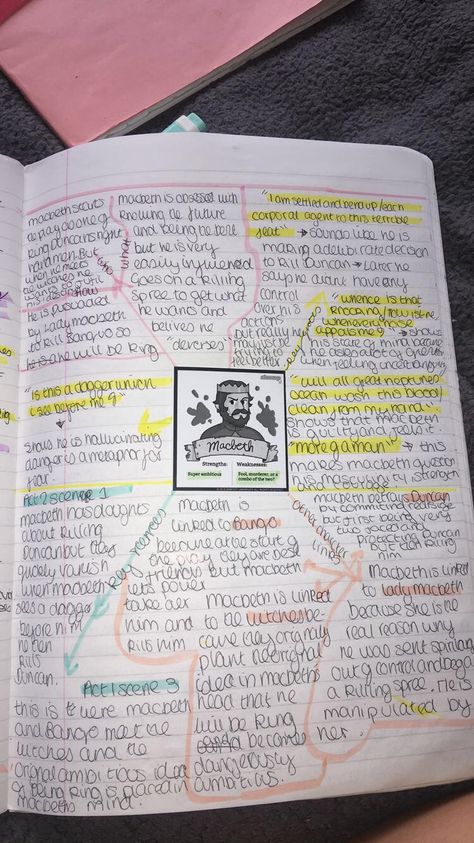 macbeth starts
the play as one of
king Duncans right
hand men. But
when he meets
the witches he
wants so so
He is persuaded
by lady macbeth
to kill Bangus so
he is and he will be king
who
what
how
macbeth is obsessed with
knowing the future
and being the best
but he is very
easily influenced
goes on a killing
spree to get what
he wants and
belives he
"deserves"
"I am settled and bend up / each
corporal agent to this terrible
feat" → sounds like he is
making a delibrate decision
to kill Duncan → Later he
says he dosnt have any
control
over his
actions
but really he
may just be
trying to
feel better
"whence is that
knocking / how ist me
when every noise
appals me?" → shows
his state of mind because
he asks alot of questions
when feeling uncertainty
"will all great neptunes
ocean wash this blood
clean from my hand"
shows that macbeth
is guilty and regret it
"more of a man" → this
makes macbeth question
"Is this a dagger which
I see before me?"
shows he is hallucinating
dangger is a metaphor for
fear.
Act 2 scene 1
macbeth has doughts
about killing
Duncan but they
quickly vanish
when macbeth
sees a dagger
before him
he then
kills
Duncan.
key quotes
key moments
other character
links
Macbeth
Strengths:
Super ambitious
Weaknesses:
Fool, murderer, or a
combo of the two?
macbeth is
linked to Bango
because at the start of
the play they are best
friends but macbeth
lets power
take over
him and
kills him
macbeth is linked
to the witches
cause they originaly
plant the orginal
idea in macbeths
head that he
will be king
he becomes
dangerously
ambitious.
macbeth betrays Duncan
by commiting regicide
but first being very
two faced
protecting Duncan
then killing
him
Macbeth is linked
to lady macbeth
because she is the
real reason why
he was sent spiriling
out of control and began
a killing spree. He is
manipulated by
her.
Act 1 scene 3
this is were macbeth
and Bango met the
witches and the
orignal ambitious idea
of being king is placed in
macbeths mind.